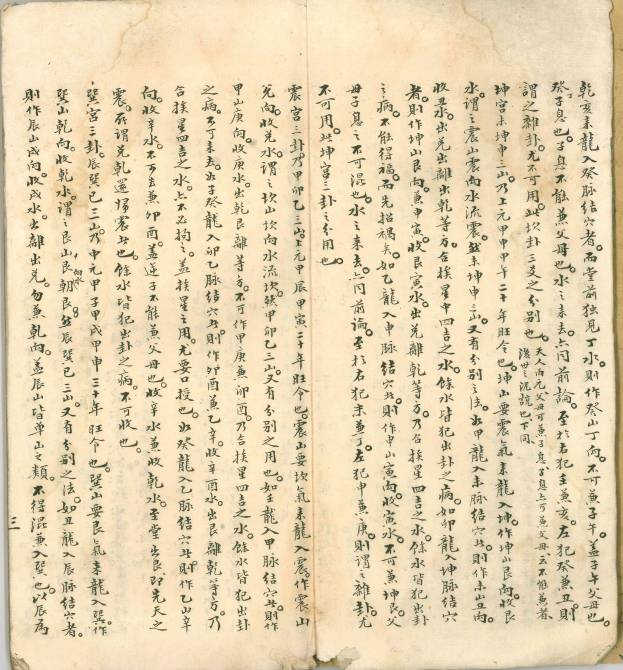 乾亥來龍入癸脉結穴者。而堂前独見丁水。則作癸山丁向。不可兼子午。蓋子午父母也。
癸子息也。子息不能兼父母也。水之来去亦同前論。至於右犯壬兼亥。左犯癸兼丑。則
謂之雜卦。尤不可用。此坎卦三爻之分别也。天人兩元父母可兼子息子息亦可兼父母云不能兼者
後世之流謊也下同
坤宫未坤申三山。乃上元甲申甲午二十年旺令也。坤山要震氣来龍入坤。作坤山艮向。收艮
水。謂之震山震向水流震。然未坤申三山。又有分别之法。如甲龍入未脉結穴者。則作未山丑向。
收丑水。出兑出離出乾等方。合挨星中四吉之水。餘水皆犯出卦之病。如卯龍入坤脉結穴
者。則作坤山艮向。兼申寅。收艮寅水。出兑離乾等方。乃合挨星四吉之水。餘水皆犯出卦
之病。不能得福。而先招禍矣。如乙龍入申脉結穴者。則作申山寅向。收寅水。不可兼坤艮。父
母子息之不可混也。水之来去。亦同前論。至於右犯未兼丁。左犯申兼庚。則謂之雜卦。尤
不可用。此坤宫三卦之分用也。
震宫三卦。乃甲卯乙三山。上元甲辰甲寅二十年旺令也。震山要坎氣来龍入震。作震山
兑向。收兑水。謂之坎山坎向水流坎。然甲卯乙三山。又有分别之用也。如壬龍入甲脉結穴者。則作
甲山庚向。收庚水。出乾艮離等方。不可作甲庚兼卯酉。乃合挨星四吉之水。餘水皆犯出卦
之病。不可来去。如子癸龍入卯乙脉結穴者。則作卯酉兼乙辛。收辛酉水。出艮離乾等方。乃
合挨星四吉之水。亦不必拘之。蓋挨星之用。尤要口授也。如癸龍入乙脉結穴者。則作乙山辛
向。收辛水。不可去兼卯酉。蓋逆子不能兼父母也。收辛水兼收乾水。至堂出艮。即先天之
震。所謂兑乾還歸震者也。餘水皆犯出卦之病。不可收也。
巽宫三卦。辰巽巳三山。乃中元甲子甲戌甲申三十年旺令也。巽山要艮氣来龍入巽。作
巽山乾向。收乾水。謂之艮山艮向水朝艮。然辰巽巳三山。又有分别之法。如丑龍入辰脉結穴者。
則作辰山戌向。收戌水。出離出兑。勿兼乾向。蓋辰山皆单山之類。不得混兼入巽也。以辰為
三